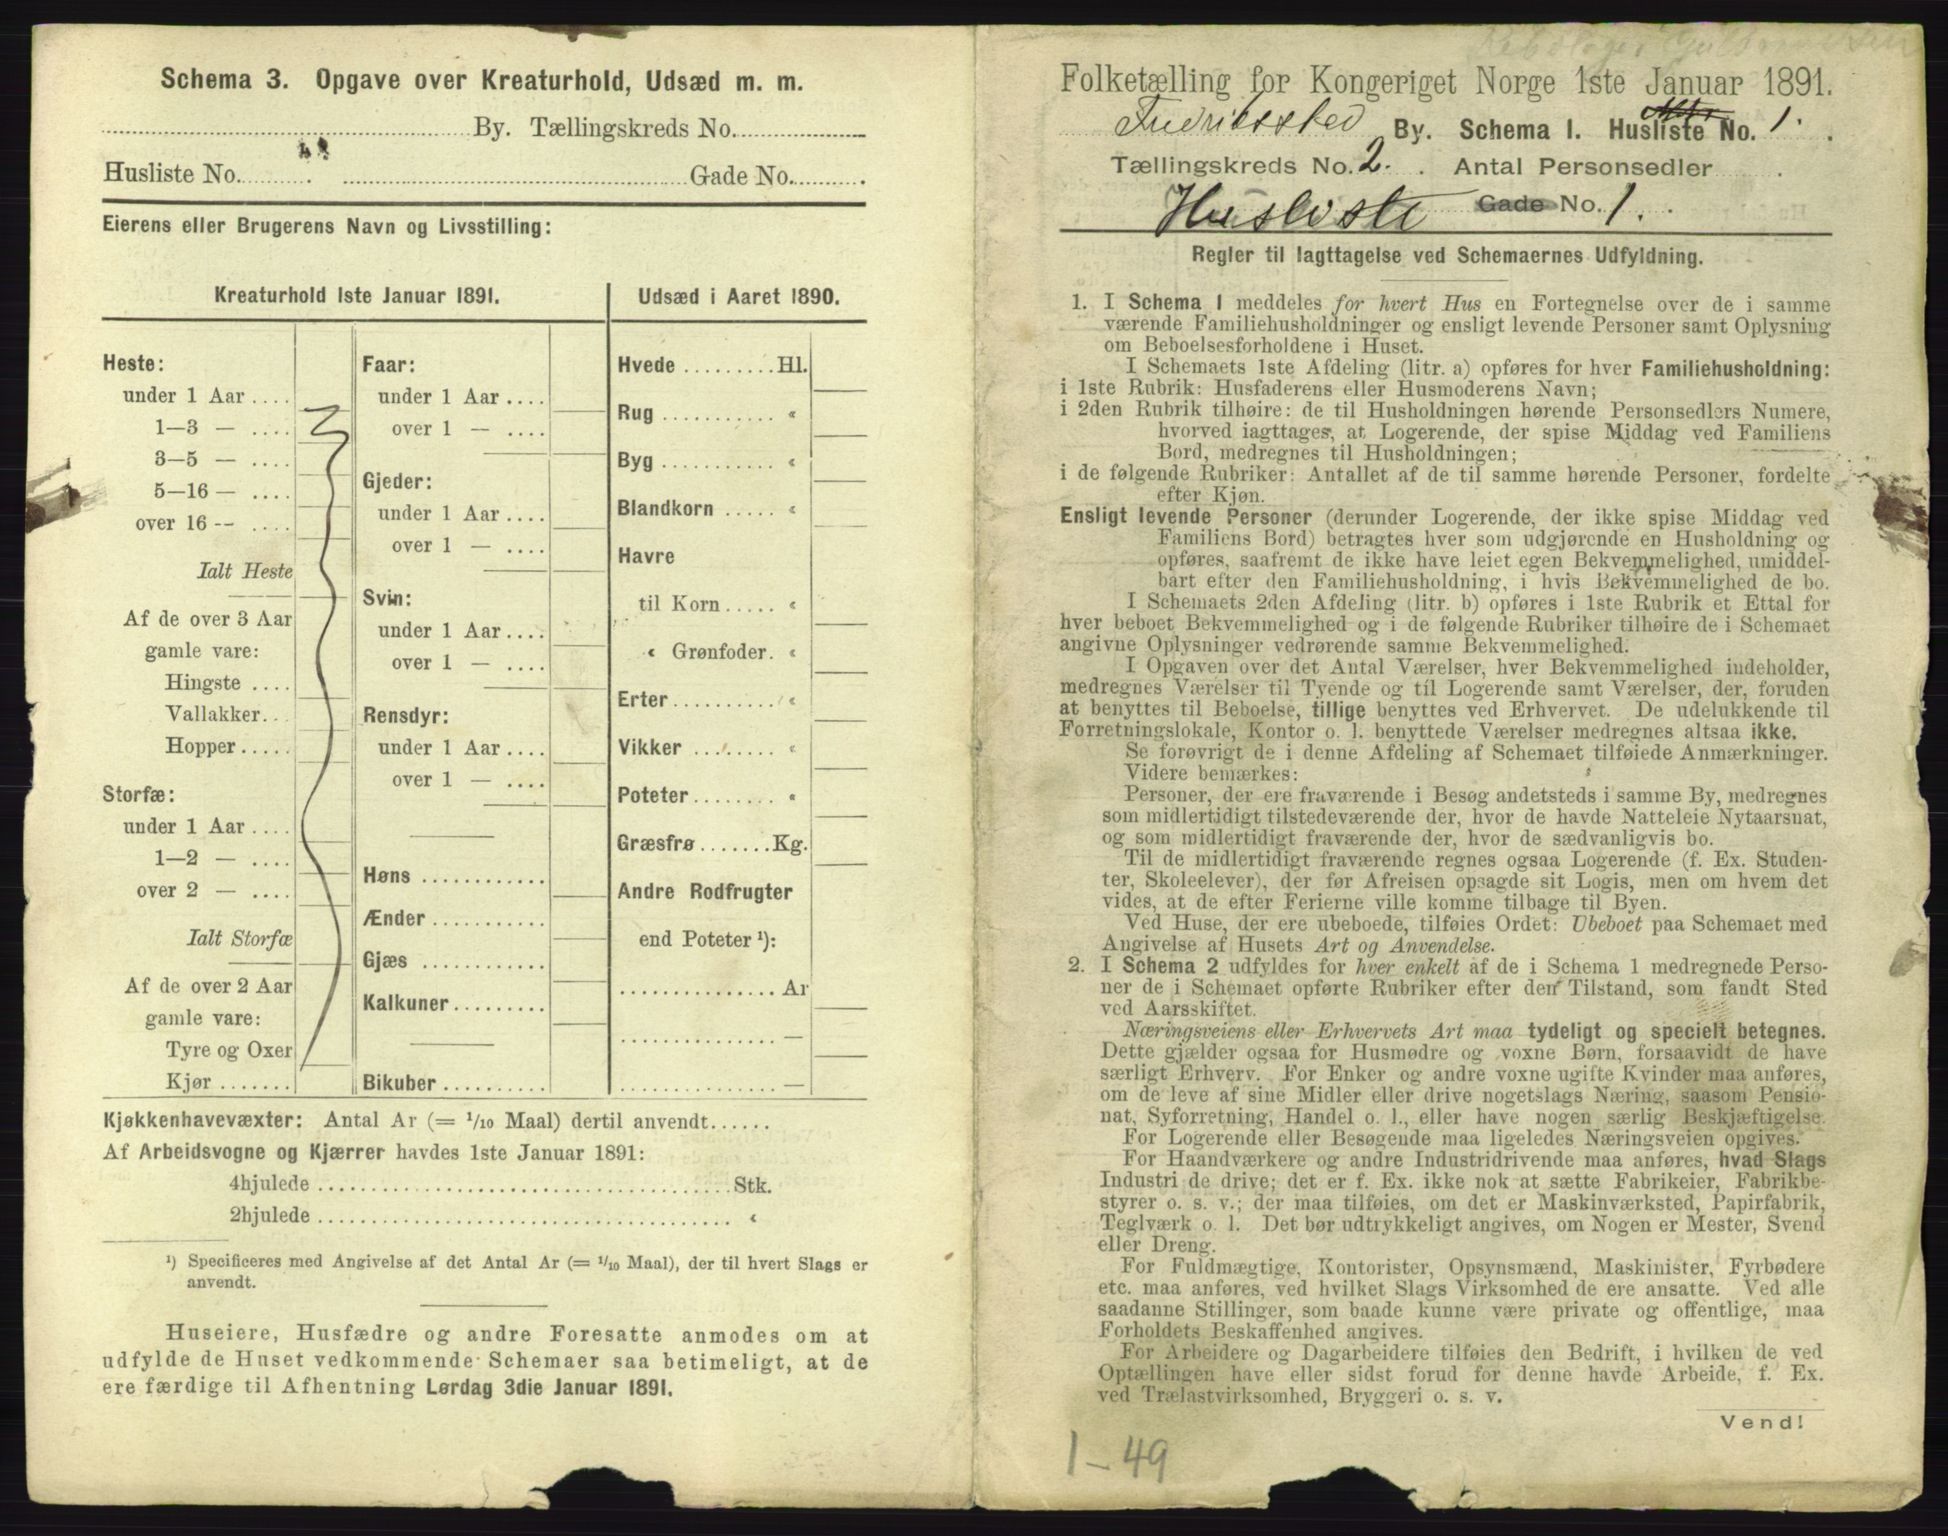 Schema 3. Opgave over Kreaturhold, Udsæd m. m.
By. Tællingskreds No.
Husliste No. Gade No.
Eierens eller Brugerens Navn og Livsstilling:
Kreaturhold 1ste Januar 1891.
Heste:
under 1 Aar ....
1—3 — ....
3—5 — ....
5—16 — ....
over 16 — ....
Ialt Heste
Af de over 3 Aar
gamle vare:
Hingste ....
Vallakker...
Hopper.....
Storfæ:
under 1 Aar ....
1—2 — ....
over 2 — ....
Ialt Storfæ
Af de over 2 Aar
gamle vare:
Tyre og Oxer
Kjør .......
Faar:
under 1 Aar ....
over 1 — ....
Gjeder:
under 1 Aar ....
over 1 — ....
Svin:
under 1 Aar ....
over 1 — ....
Rensdyr:
under 1 Aar ....
over 1 — ....
Høns ............
Ænder ...........
Gjæs ............
Kalkuner.........
Bikuber ..........
Udsæd i Aaret 1890.
Hvede .........Hl.
Rug ........... «
Byg ........... «
Blandkorn ..... «
Havre
til Korn ..... «
« Grønfoder. «
Erter .......... «
Vikker ........ «
Poteter ........ «
Græsfrø.......Kg.
Andre Rodfrugter
end Poteter ¹):
............... Ar
............... —
............... —
Kjøkkenhavevæxter: Antal Ar (= 1/10 Maal) dertil anvendt......
Af Arbeidsvogne og Kjærrer havdes 1ste Januar 1891:
4hjulede ........................................ Stk.
2hjulede ........................................ «
¹) Specificeres med Angivelse af det Antal Ar (= 1/10 Maal), der til hvert Slags er
anvendt.
Huseiere, Husfædre og andre Foresatte anmodes om at
udfylde de Huset vedkommende Schemaer saa betimeligt, at de
ere færdige til Afhentning Lørdag 3die Januar 1891.
Folketælling for Kongeriget Norge 1ste Januar 1891.
Fredriksstad By. Schema 1. Husliste No. 1.
Tællingskreds No. 2. Antal Personsedler
Husliste Gade No. 1.
Regler til Iagttagelse ved Schemaernes Udfyldning.
1. I Schema 1 meddeles for hvert Hus en Fortegnelse over de i samme
værende Familiehusholdninger og ensligt levende Personer samt Oplysning
om Beboelsesforholdene i Huset.
I Schemaets 1ste Afdeling (litr. a) opføres for hver Familiehusholdning:
i 1ste Rubrik: Husfaderens eller Husmoderens Navn;
i 2den Rubrik tilhøire: de til Husholdningen hørende Personsedlers Numere,
hvorved iagttages, at Logerende, der spise Middag ved Familiens
Bord, medregnes til Husholdningen;
i de følgende Rubriker: Antallet af de til samme hørende Personer, fordelte
efter Kjøn.
Ensligt levende Personer (derunder Logerende, der ikke spise Middag ved
Familiens Bord) betragtes hver som udgjørende en Husholdning og
opføres, saafremt de ikke have leiet egen Bekvemmelighed, umiddel-
bart efter den Familiehusholdning, i hvis Bekvemmelighed de bo.
I Schemaets 2den Afdeling (litr. b) opføres i 1ste Rubrik et Ettal for
hver beboet Bekvemmelighed og i de følgende Rubriker tilhøire de i Schemaet
angivne Oplysninger vedrørende samme Bekvemmelighed.
I Opgaven over det Antal Værelser, hver Bekvemmelighed indeholder,
medregnes Værelser til Tyende og til Logerende samt Værelser, der, foruden
at benyttes til Beboelse, tillige benyttes ved Erhvervet. De udelukkende til
Forretningslokale, Kontor o. l. benyttede Værelser medregnes altsaa ikke.
Se forøvrigt de i denne Afdeling af Schemaet tilføiede Anmærkninger.
Videre bemærkes:
Personer, der ere fraværende i Besøg andetsteds i samme By, medregnes
som midlertidigt tilstedeværende der, hvor de havde Natteleie Nytaarsnat,
og som midlertidigt fraværende der, hvor de sædvanligvis bo.
Til de midlertidigt fraværende regnes ogsaa Logerende (f. Ex. Studen-
ter, Skoleelever), der før Afreisen opsagde sit Logis, men om hvem det
vides, at de efter Ferierne ville komme tilbage til Byen.
Ved Huse, der ere ubeboede, tilføies Ordet: Ubeboet paa Schemaet med
Angivelse af Husets Art og Anvendelse.
2. I Schema 2 udfyldes for hver enkelt af de i Schema 1 medregnede Perso-
ner de i Schemaet opførte Rubriker efter den Tilstand, som fandt Sted
ved Aarsskiftet.
Næringsveiens eller Erhvervets Art maa tydeligt og specielt betegnes.
Dette gjælder ogsaa for Husmødre og voxne Børn, forsaavidt de have
særligt Erhverv. For Enker og andre voxne ugifte Kvinder maa anføres,
om de leve af sine Midler eller drive nogetslags Næring, saasom Pensio-
nat, Syforretning, Handel o. l., eller have nogen særlig Beskjæftigelse.
For Logerende eller Besøgende maa ligeledes Næringsveien opgives.
For Haandværkere og andre Industridrivende maa anføres, hvad Slags
Industri de drive; det er f. Ex. ikke nok at sætte Fabrikeier, Fabrikbe-
styrer o. s. v.; der maa tilføies, om det er Maskinværksted, Papirfabrik,
Teglværk o. l. Det bør udtrykkeligt angives, om Nogen er Mester, Svend
eller Dreng.
For Fuldmægtige, Kontorister, Opsynsmænd, Maskinister, Fyrbødere
etc. maa anføres, ved hvilket Slags Virksomhed de ere ansatte. Ved alle
saadanne Stillinger, som baade kunne være private og offentlige, maa
Forholdets Beskaffenhed angives.
For Arbeidere og Dagarbeidere tilføies den Bedrift, i hvilken de ved
Optællingen have eller sidst forud for denne havde Arbeide, f. Ex.
ved Trælastvirksomhed, Bryggeri o. s. v.
Vend!
1-49